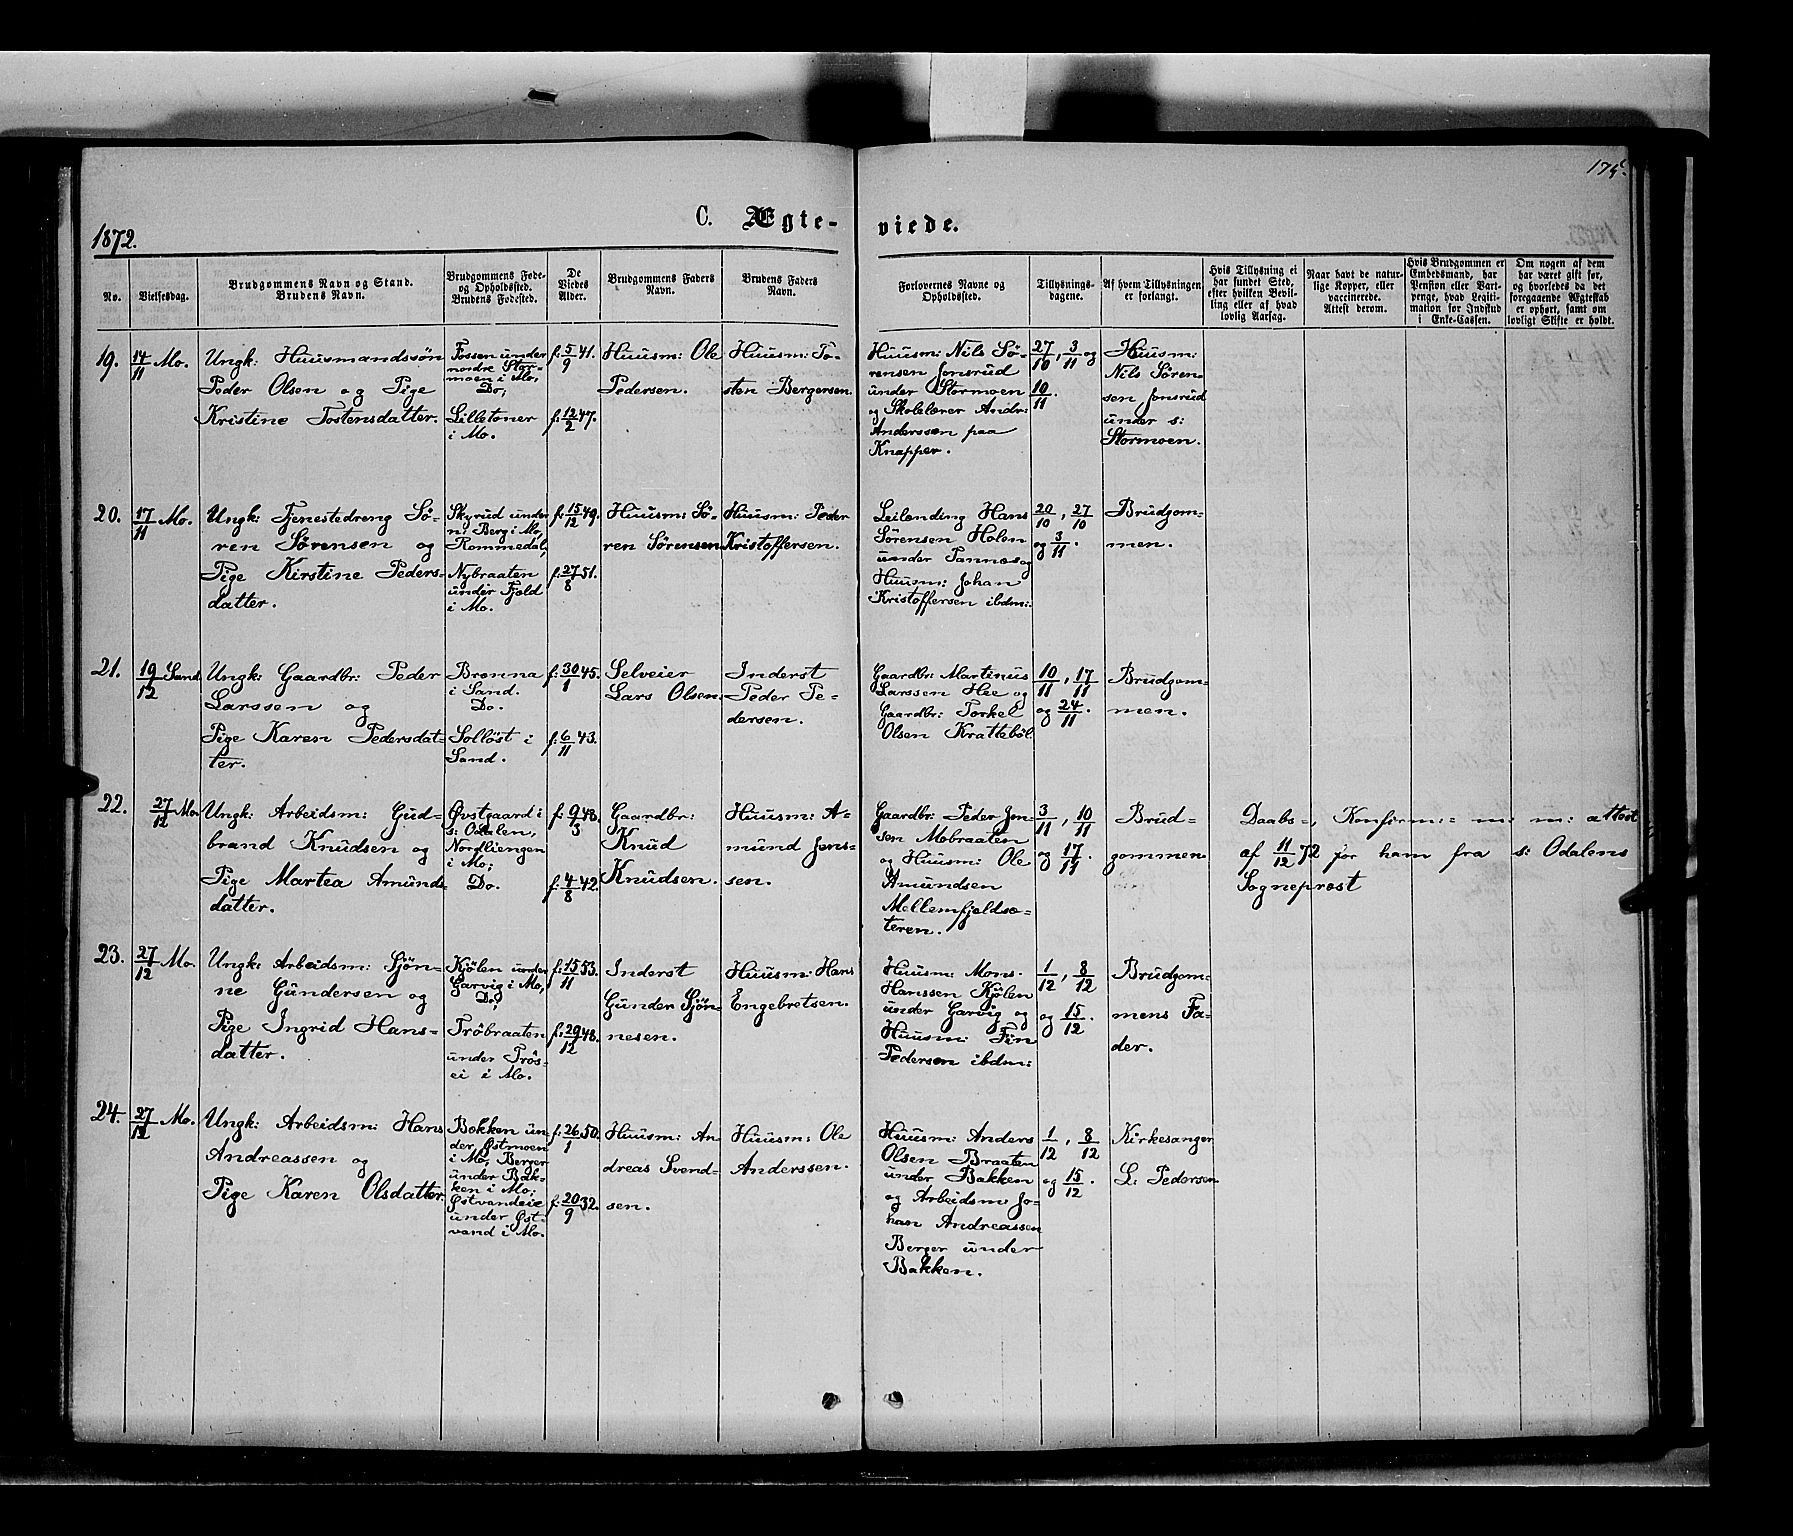 175.
1872.
C. Ægte- viede.
No.
Vielsesdag.
Brudgommens Navn og Stand.
Brudens Navn.
Brudgommens Føde-
og Opholdssted.
Brudens Fødested.
De
Viedes
Alder.
Brudgommens Faders
Navn.
Brudens Faders
Navn.
Forlovernes Navne og
Opholdssted.
Tillysnings-
dagene.
Af hvem Tillysningen
er forlangt.
Hvis Tillysning ei
har fundet Sted,
efter hvilken Bevil-
ling eller af hvad
lovlig Aarsag.
Naar havt de natur-
lige Kopper, eller
vaccinerede.
Attest derom.
Hvis Brudgommen er
Embedsmand, har
Pension eller Vart-
penge, hvad Legiti-
mation for Indskud
i Enke-Cassen.
Om nogen af dem
har været gift før,
og hvorledes da det
foregaaende Ægteskab
er ophørt, samt om
lovligt Skifte er holdt.
19.
14/11 Mo.
Ungk: Huusmandssøn
Peder Olsen og Pige
Kristine Tostensdatter.
Fossen under
nordre Stor-
moen i Mo,
Do,
Lilletoner
i Mo.
f: 5/9 41.
f: 12/2 47.
Huusm: Ole
Pedersen.
Huusm: To-
sten Bergersen.
Huusm: Nils Sö-
rensen Jonsrud
under Stormoen
og Skolelærer Andr:
Anderssen paa
Knapper.
27/10, 3/11 og
10/11.
Huusm:
Nils Sören-
sen Jonsrud
under s:
Stormoen.
20.
17/11 Mo.
Ungk: Tjenestedreng Sö-
ren Sörensen og
Pige Kirstine Peders-
datter.
Skyrud under
n: Berg i Mo,
Rommedal,
Nybraaten
under Fjeld
i Mo.
f: 15/12 49.
f: 27/8 51.
Huusm: Sö-
ren Sörensen.
Huusm: Peder
Kristoffersen.
Leilending Hans
Sörensen Holen
under Tannæs og
Huusm: Johan
Kristoffersen ibdm:
20/10, 27/10
og 3/11.
Brudgom-
men.
21.
19/12 Sand
Ungk: Gaardbr: Peder
Larssen og
Pige Karen Pedersdat-
ter.
Brønna
i Sand.
Do.
Solløst i
Sand.
f: 30/1 45.
f: 6/11 43.
Selveier
Lars Olsen.
Inderst
Peder Pe-
dersen.
Gaardbr: Martinus
Larssen Hee og
Gaardbr: Torkel
Olsen Krattebøl
10/11, 17/11
og 24/11.
Brudgom-
men.
22.
27/12 Mo.
Ungk: Arbeidsm: Gud-
brand Knudsen og
Pige Martea Amunds-
datter.
Øvstgaard i
s: Odalen,
Nordliengen
i Mo;
Do.
f: 9/3 48.
f: 4/8 42.
Gaardbr:
Knud
Knudsen.
Huusm: A-
mund Jens-
sen.
Gaardbr: Peder Jon-
sen Mobraaten
og Huusm: Ole
Amundsen
Mellemfjeldsæ-
teren.
3/11, 10/11
og 17/11.
Brud-
gommen
Daabs-, Konfirm:- m: m: attest
af 11/12 72 for ham fra s: Odalens
Sogneprest
23.
27/12 Mo.
Ungk: Arbeidsm: Sjön-
ne Gundersen og
Pige Ingrid Hans-
datter.
Kjölen under
Garvig i Mo,
Do,
Tröbraaten
under Trös-
ei i Mo.
f: 15/11 53.
f: 29/12 48.
Inderst
Gunder Sjön-
nesen.
Huusm: Hans
Engebretsen.
Huusm: Mons
Hanssen Kjölen
under Garvig og
Huusm: Fin
Pedersen ibdm:
1/12, 8/12
og 15/12.
Brudgom-
mens Fa-
der.
24.
27/12 Mo.
Ungk: Arbeidsm: Hans
Andreassen og
Pige Karen Olsdatter.
Bakken un-
der Østmoen
i Mo, Berger
under Bak-
ken i Mo;
Østvandeie
under Øst-
vand i Mo.
f: 26/1 50.
f: 20/9 32.
Huusm: An-
dreas Svend-
sen.
Huusm: Ole
Anderssen.
Huusm: Anders
Olsen Braaten
under Bakken
og Arbeidsm: Jo-
han Andreassen
Berger under
Bakken.
1/12, 8/12
og 15/12.
Kirkesanger
L: Pedersen